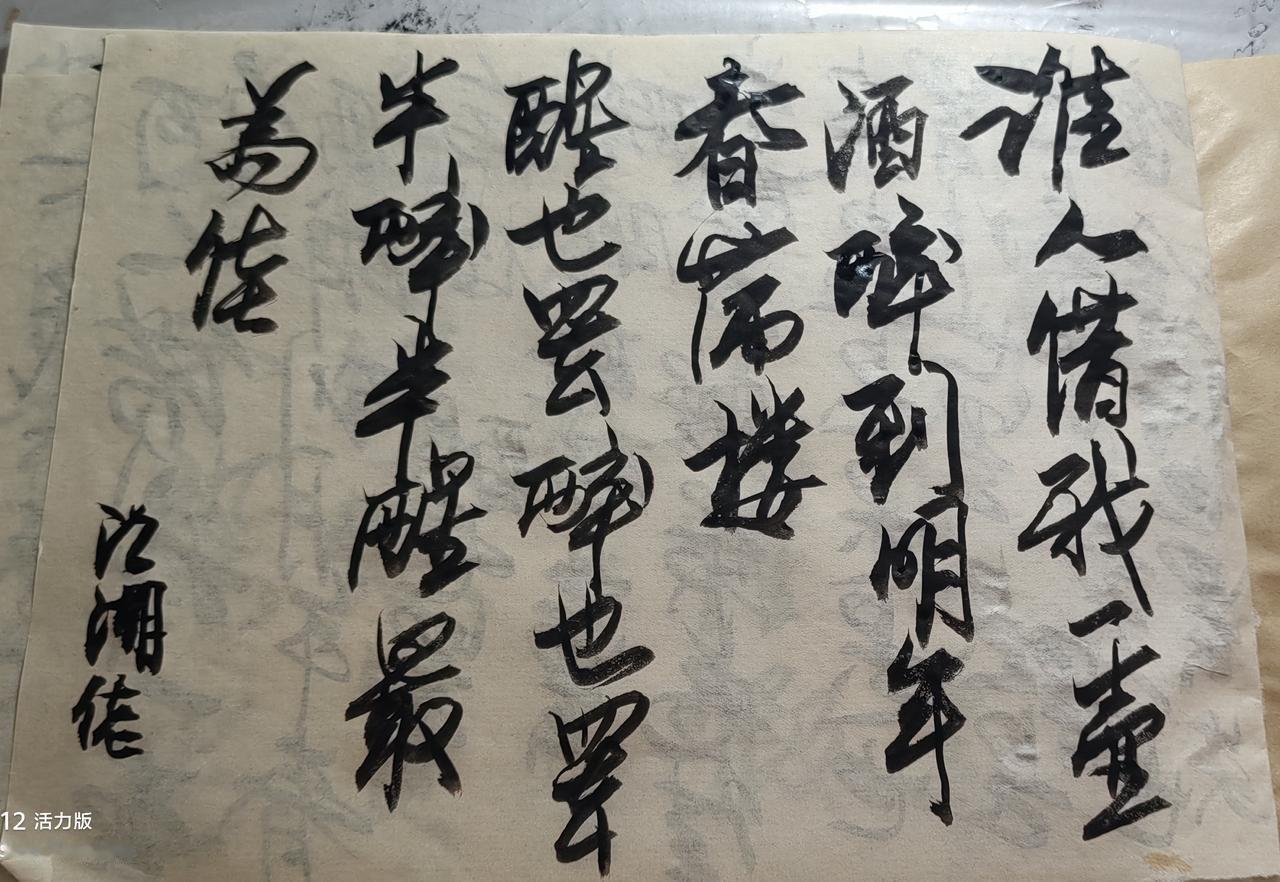 谁人借我一壶
酒醉到明年
春满楼
醒也罢醉也罢
半醉半醒最
为佳
江湖佬
12 活力版